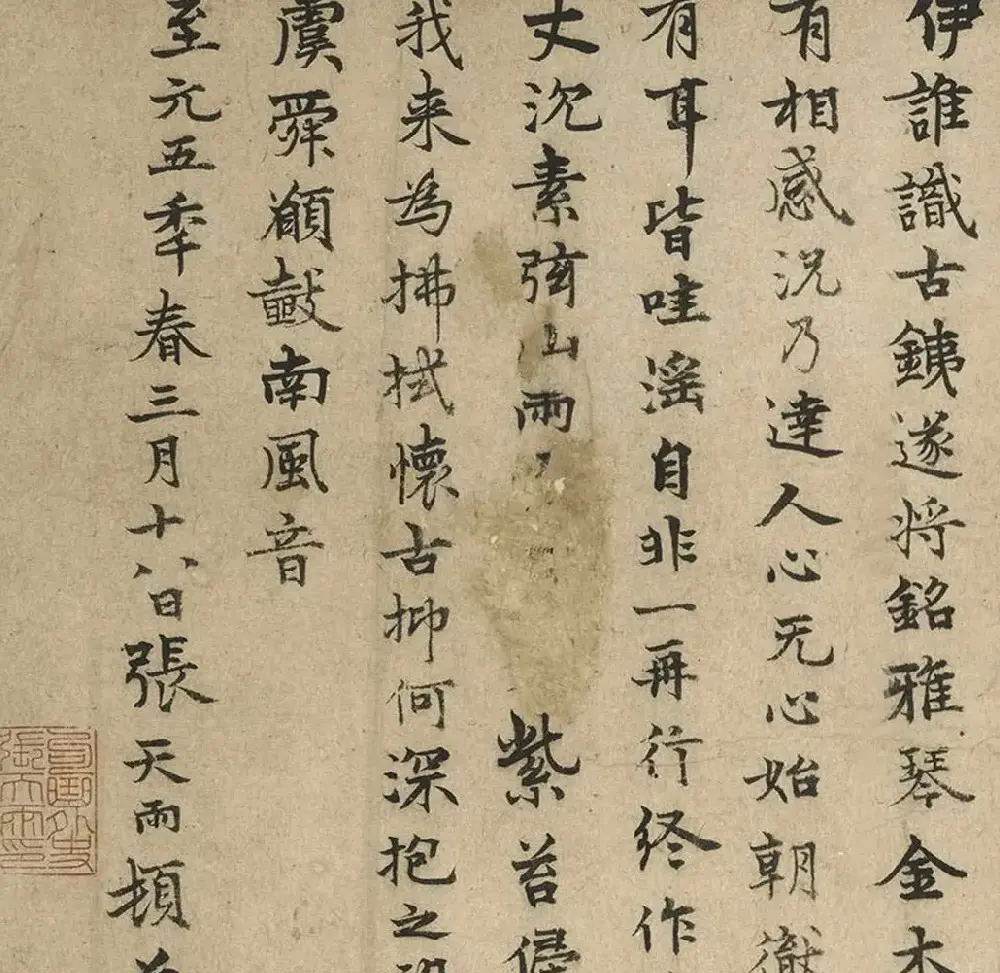 伊誰識古銕遂將銘雅琴金木
有相感況乃達人心无心始朝徹
有耳皆哇滛自非一再行終作
丈沉素弦山雨紫苔侵
我来為拂拭懷古抑何深抱之
虞舜願鼓南風音
至元五年春三月十八日張天雨頓首